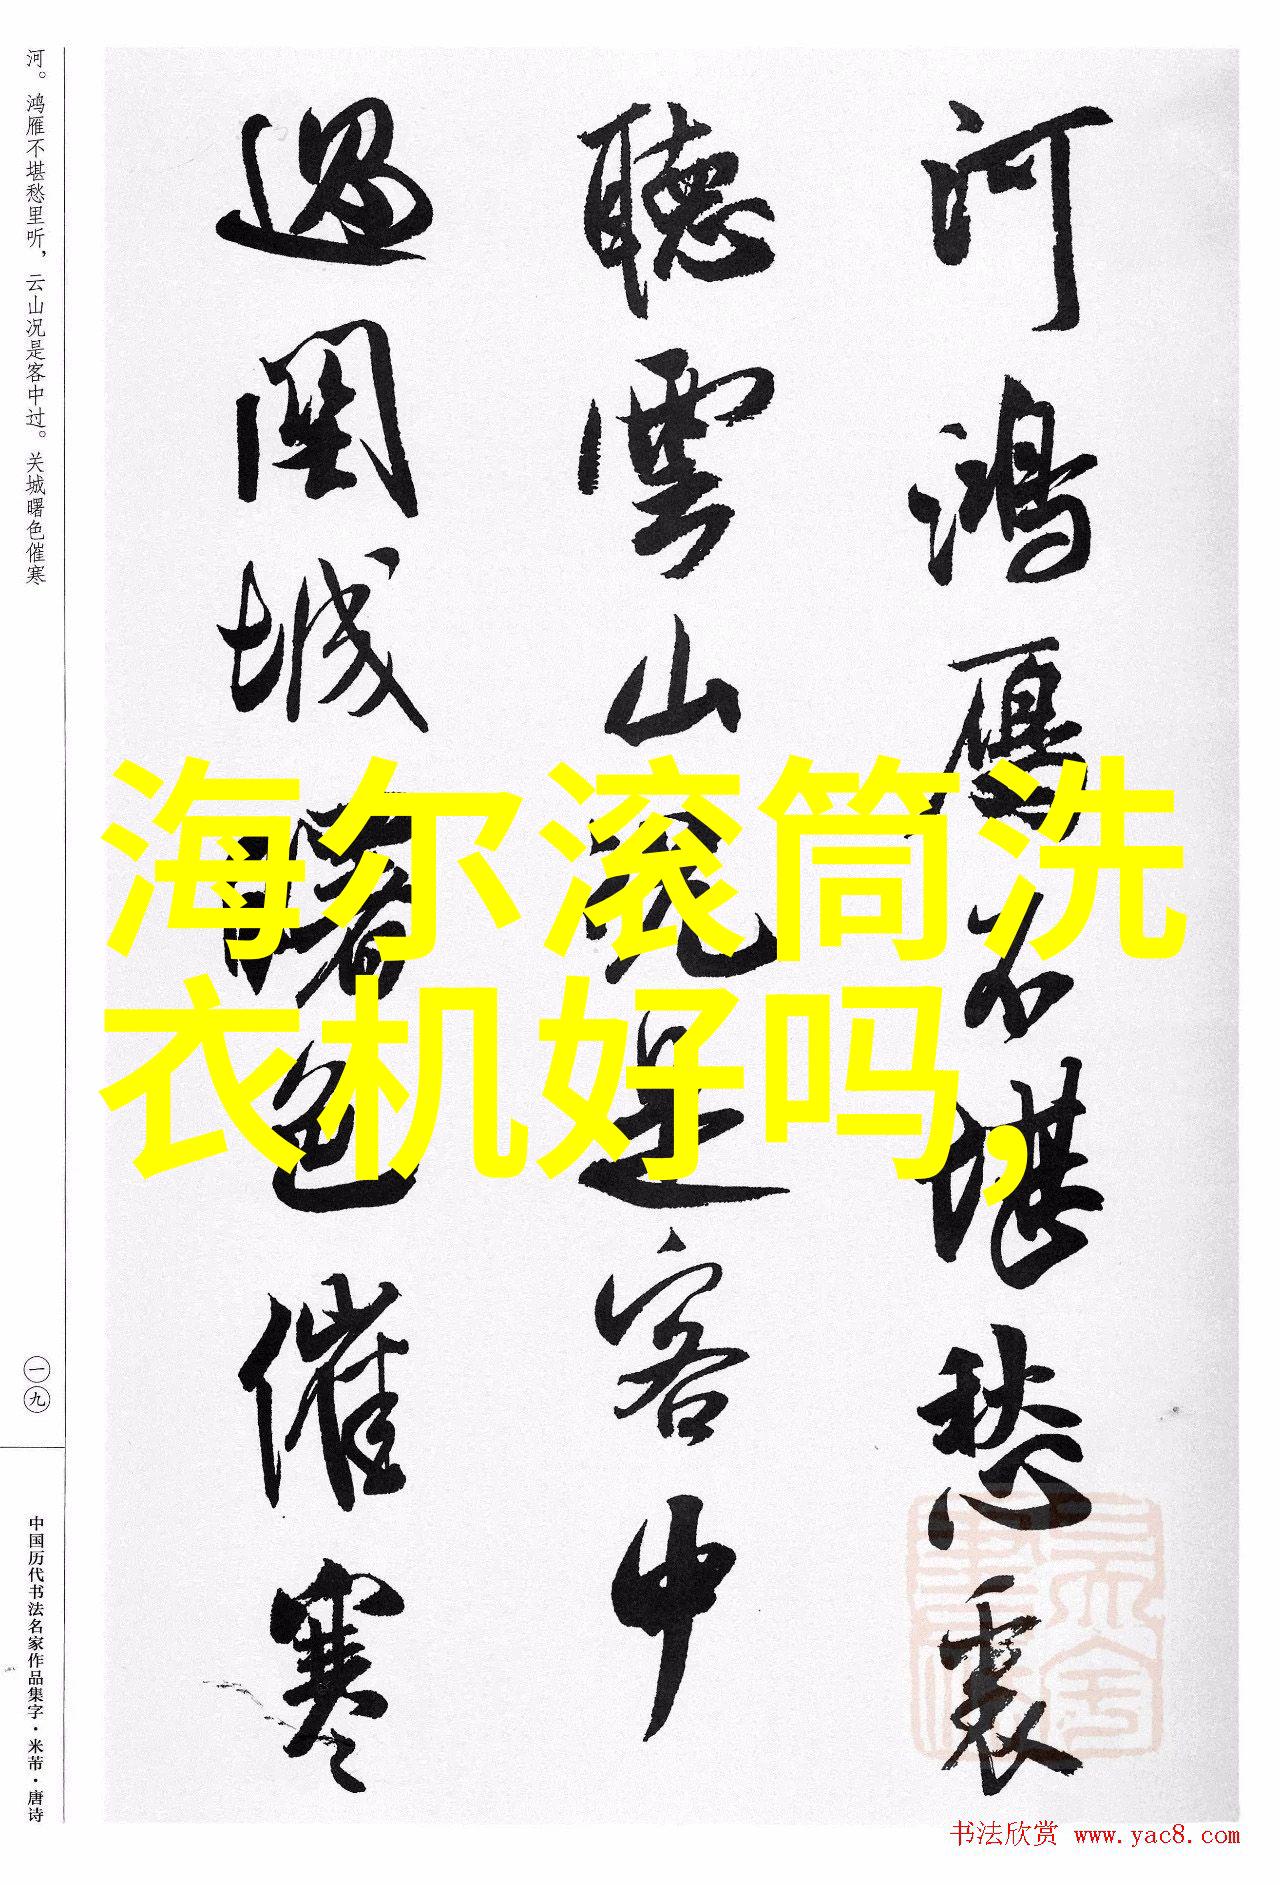 河鴻雁不堪愁裏
聽雲山況是客中
過關城曙色催寒
海尔滚筒洗
衣机好吗,
河。鸿雁不堪愁里听，云山况是客中过。关城曙色催寒
一九
中国历代书法名家作品集字·米芾·唐诗
书法欣赏 www.yac8.com